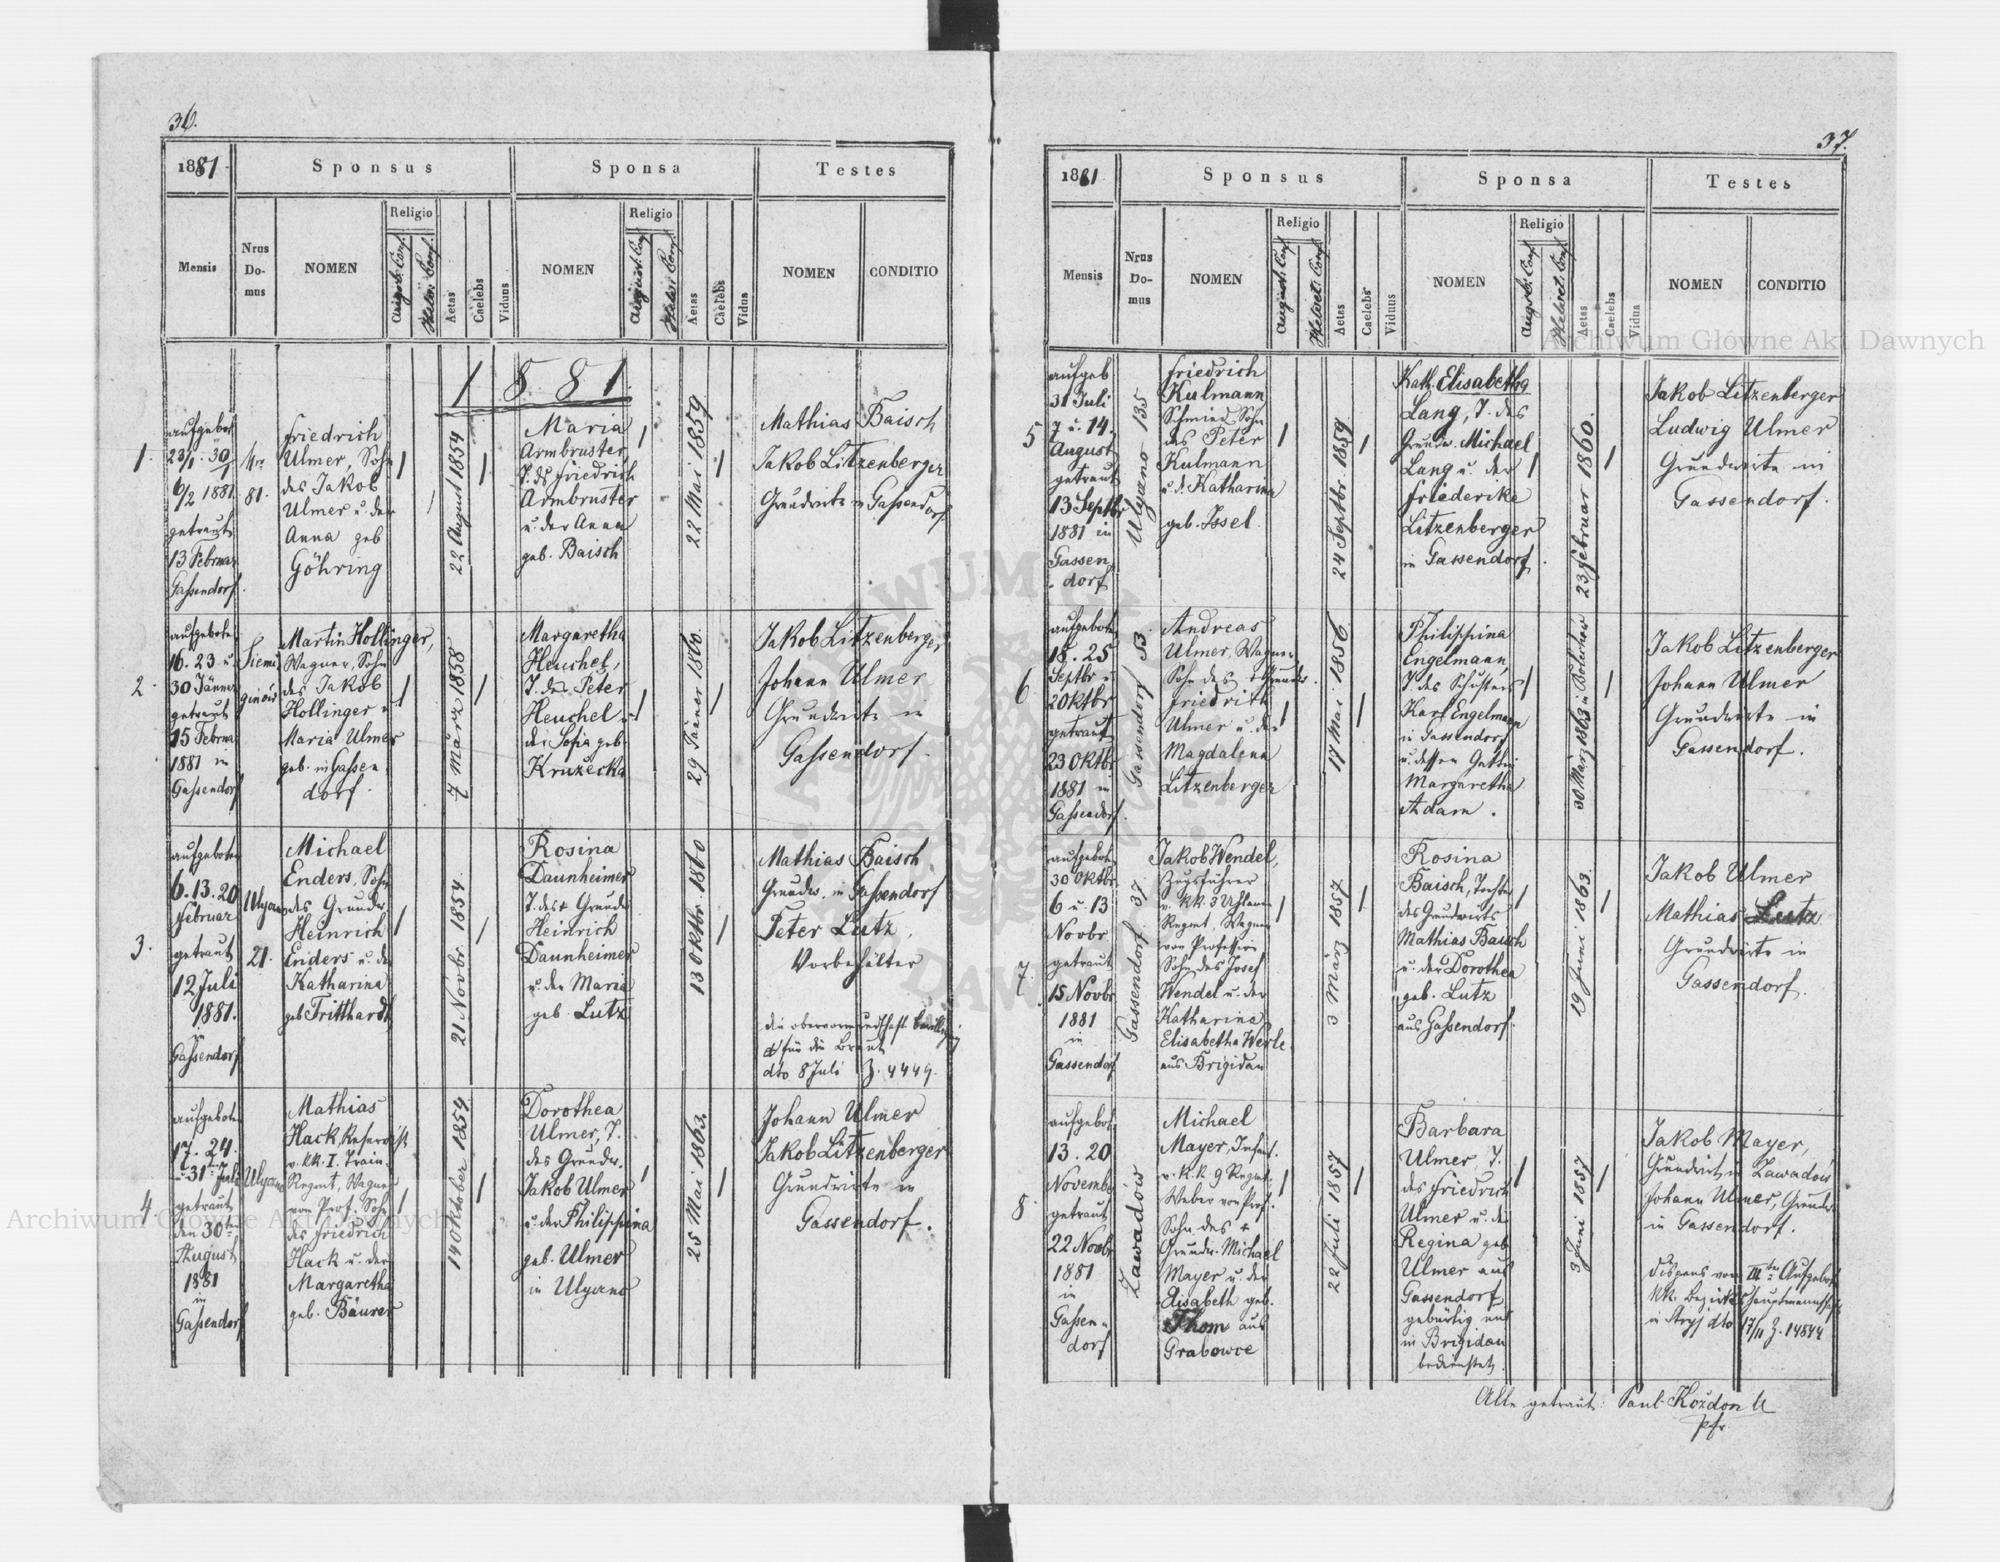 36.
1881.
Sponsus
Sponsa
Testes
Mensis
Nrus
Do-
mus
NOMEN
Religio
Augsb. Conf.
Helv. Conf.
Aetas
Caelebs
Viduus
NOMEN
Religio
August. Conf.
Helv. Conf.
Aetas
Caelebs
Vidua
NOMEN
CONDITIO
1881
1.
aufgebot
23/1. 30/1
6/2 1881
getraut
13 Februar
Gassendorf
Nro
81.
Friedrich
Ulmer, Sohn
des Jakob
Ulmer u. der
Anna geb
Göhring
22 August 1854
Maria
Armbruster,
T. ds Friedrich
Armbruster
u. der Anna
geb. Baisch
22 Mai 1859
Mathias Baisch
Jakob Litzenberger
Grundwirte in Gassendorf
2.
aufgeboten
16. 23 u.
30 Jänner
getraut
15 Februar
1881 in
Gassendorf
Siemi
ginów
Martin Hollinger,
Wagner, Sohn
des Jakob
Hollinger u
Maria Ulmer
geb. in Gassen
dorf.
7 März 1858
Margaretha
Heuchel,
T. des Peter
Heuchel u
der Sofia geb.
Kružecka
29 Jäner 1860.
Jakob Litzenberger
Johann Ulmer
Grundwirte in
Gassendorf.
3.
aufgeboten
6. 13. 20
Februar
getraut
12 Juli
1881.
in
Gassendorf
Ulyczno
21.
Michael
Enders, Sohn
des Grundw.
Heinrich
Enders u. der
Katharina
geb Tritthardt
21 Novbr. 1854.
Rosina
Daunheimer
T. des + Grundw
Heinrich
Daunheimer
u. der Maria
geb. Lutz
13 Oktbr. 1860
Mathias Baisch,
Grundw. in Gassendorf
Peter Lutz,
Vorbehälter
die obervormundschaft. Bewilligung
für die Braut
dto 8 Juli Z. 4449.
4.
aufgeboten
17. 24.
u 31ten Juli
getraut
den 30ten
August
1881
in
Gassendorf
Ulyczno
Mathias
Hack, Reservist
v. kk. I. Train-
Regmt, Wagner
von Prof. Sohn
des Friedrich
Hack u. der
Margaretha
geb. Bäurer
14 Oktober 1854
Dorothea
Ulmer, T.
des Grundw.
Jakob Ulmer
u. der Philippina
geb. Ulmer
in Ulyczno
25 Mai 1863.
Johann Ulmer
Jakob Litzenberger
Grundwirte in
Gassendorf.
37.
1881
Sponsus
Sponsa
Testes
Mensis
Nrus
Do-
mus
NOMEN
Religio
August. Conf.
Helvet. Conf.
Aetas
Caelebs
Viduus
NOMEN
Religio
Augsb. Conf.
Helvet. Conf.
Aetas
Caelebs
Vidua
NOMEN
CONDITIO
5
aufgeb
31 Juli
7 u. 14.
August
getraut
13 Septbr
1881 in
Gassen
dorf
Ulyczno 135
Friedrich
Kulmann
Schmied, Sohn
des Peter
Kulmann
u. d. Katharina
geb. Issel.
24 Septbr. 1854
Kath. Elisabetha
Lang, T. des
Grundw. Michael
Lang u. der
Friederike
Litzenberger
in Gassendorf.
23 Februar 1860.
Jakob Litzenberger
Ludwig Ulmer
Grundwirte in
Gassendorf.
6
aufgeboten
18. 25
Septbr u
2 Oktbr
getraut
23 Oktbr
1881 in
Gassendorf.
Gassendorf 53.
Andreas
Ulmer, Wagner
Sohn des + Grundw.
Friedrich
Ulmer u. der
Magdalena
Litzenberger
17 Mai 1856
Philippina
Engelmann,
T. des Schusters
Karl Engelmann
in Gassendorf
u. dessen Gattin
Margaretha
Adam.
30 März 1863
Jakob Litzenberger
Johann Ulmer
Grundwirte in
Gassendorf.
7.
aufgebot
30 Oktbr
6 u. 13
Novbr
getraut
15 Novbr
1881
in
Gassendorf
Gassendorf 37.
Jakob Wendel,
Zugsführer
v. kk. 3 Uhlanen
Regmt, Wagner
von Profession
Sohn des Josef
Wendel u. der
Katharina
Elisabetha Werle
aus Brigidau
3 März 1857.
Rosina
Baisch, Tochter
des Grundwirts
Mathias Baisch
u. der Dorothea
geb. Lutz
aus Gassendorf.
19 Juni 1863.
Jakob Ulmer
Mathias Lutz
Grundwirte in
Gassendorf.
8
aufgebot
13. 20
November
getraut
22 Novbr
1881
in
Gassen-
dorf
Zawadów
Michael
Mayer, Infant.
v. k. k. 9 Regmt.
Weber von Prof.
Sohn des +
Grundw. Michael
Mayer u. der
Elisabeth geb.
Thom aus
Grabowce
22 Juli 1857
Barbara
Ulmer, T.
des Friedrich
Ulmer u. der
Regina geb
Ulmer aus
Gassendorf
gebürtig und
in Brigidau
bedienstet.
3 Juni 1857
Jakob Mayer,
Grundwirt in Zawadów
Johann Ulmer, Grundw.
in Gassendorf.
Dispens vom IIIten Aufgebot
kk. Bezirkshauptmannschaft
in Stryj dto 17/11 Z. 14844
Alle getraut: Paul Kozdon
Pfr
Archiwum Główne Akt Dawnych
Archiwum Główne Akt Dawnych